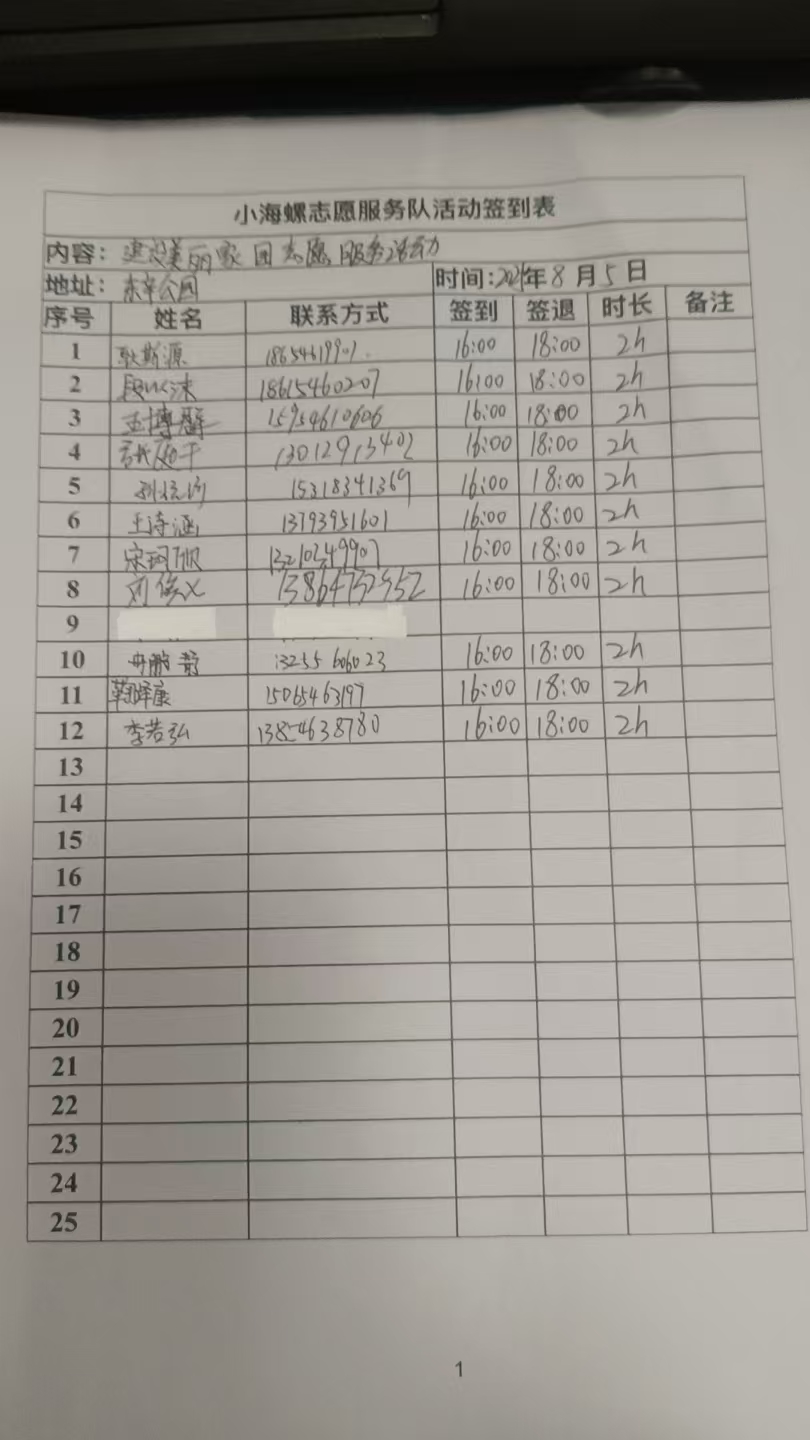 小海螺志愿服务队活动签到表
内容：建设美丽家园志愿服务活动
地址：东辛公园 时间：2021年8月5日
序号 姓名 联系方式 签到 签退 时长 备注
1 耿斯源 18654619901 16:00 18:00 2h
2 18615460207 16:00 18:00 2h
3 15954610606 16:00 18:00 2h
4 13012913402 16:00 18:00 2h
5 15318341369 16:00 18:00 2h
6 王诗涵 13793951601 16:00 18:00 2h
7 13210349907 16:00 18:00 2h
8 16:00 18:00 2h
9
10 13255606023 16:00 18:00 2h
11 15065463197 16:00 18:00 2h
12 李若弘 13854638780 16:00 18:00 2h
13
14
15
16
17
18
19
20
21
22
23
24
25
1